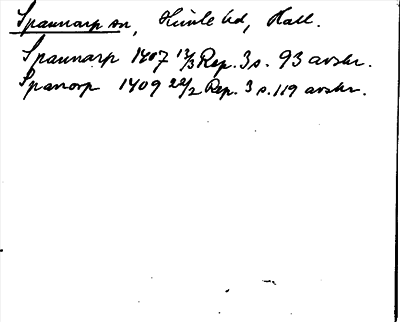 Spannarp sn, Himle hd, Hall.
Spannarp 1407 13/3 Rep. 3 s. 93 avskr.
Spanorp 1409 22/2 Rep. 3 s. 119 avskr.